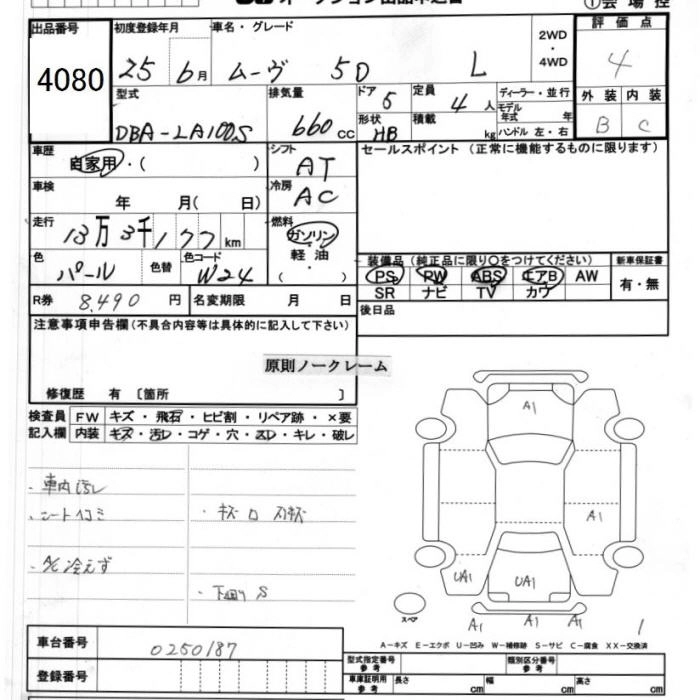 ①会場控
出品番号
4080
初度登録年月
25 6月
車名・グレード
ムーヴ 5D L
2WD
・
4WD
評価点
4
外装 内装
B C
型式
DBA-LA100S
排気量
660 cc
ドア
5
定員
4 人
ディーラー・並行
形状
HB
積載
kg
モデル年式 年
ハンドル 左・右
車歴
自家用・( )
シフト
AT
セールスポイント (正常に機能するものに限ります)
車検
年 月( 日)
冷房
AC
走行
13万3千177km
燃料
ガソリン
・
軽油
・
( )
色
パール
色替
色コード
W24
装備品(純正品に限り○をつけてください)
新車保証書
PS PW ABS エアB AW
SR ナビ TV カワ
有・無
R券 8,490 円
名変期限 月 日
後日品
注意事項申告欄(不具合内容等は具体的に記入して下さい)
原則ノークレーム
修復歴 有〔箇所 〕
検査員記入欄
FW キズ・飛石・ヒビ割・リペア跡・×要
内装 キズ・汚レ・コゲ・穴・スレ・キレ・破レ
・車内汚レ
・シート
・キズ
・A/C冷えず
・下廻り S
A1
A1
UA1
UA1
スペア
A1 A1 A1
1
車台番号
0250187
登録番号
A-キズ E-エクボ U-凹み W-補修跡 S-サビ C-腐食 XX-交換済
型式指定番号
参考
類別区分番号
参考
車庫証明用
参考
長さ cm
幅 cm
高さ cm